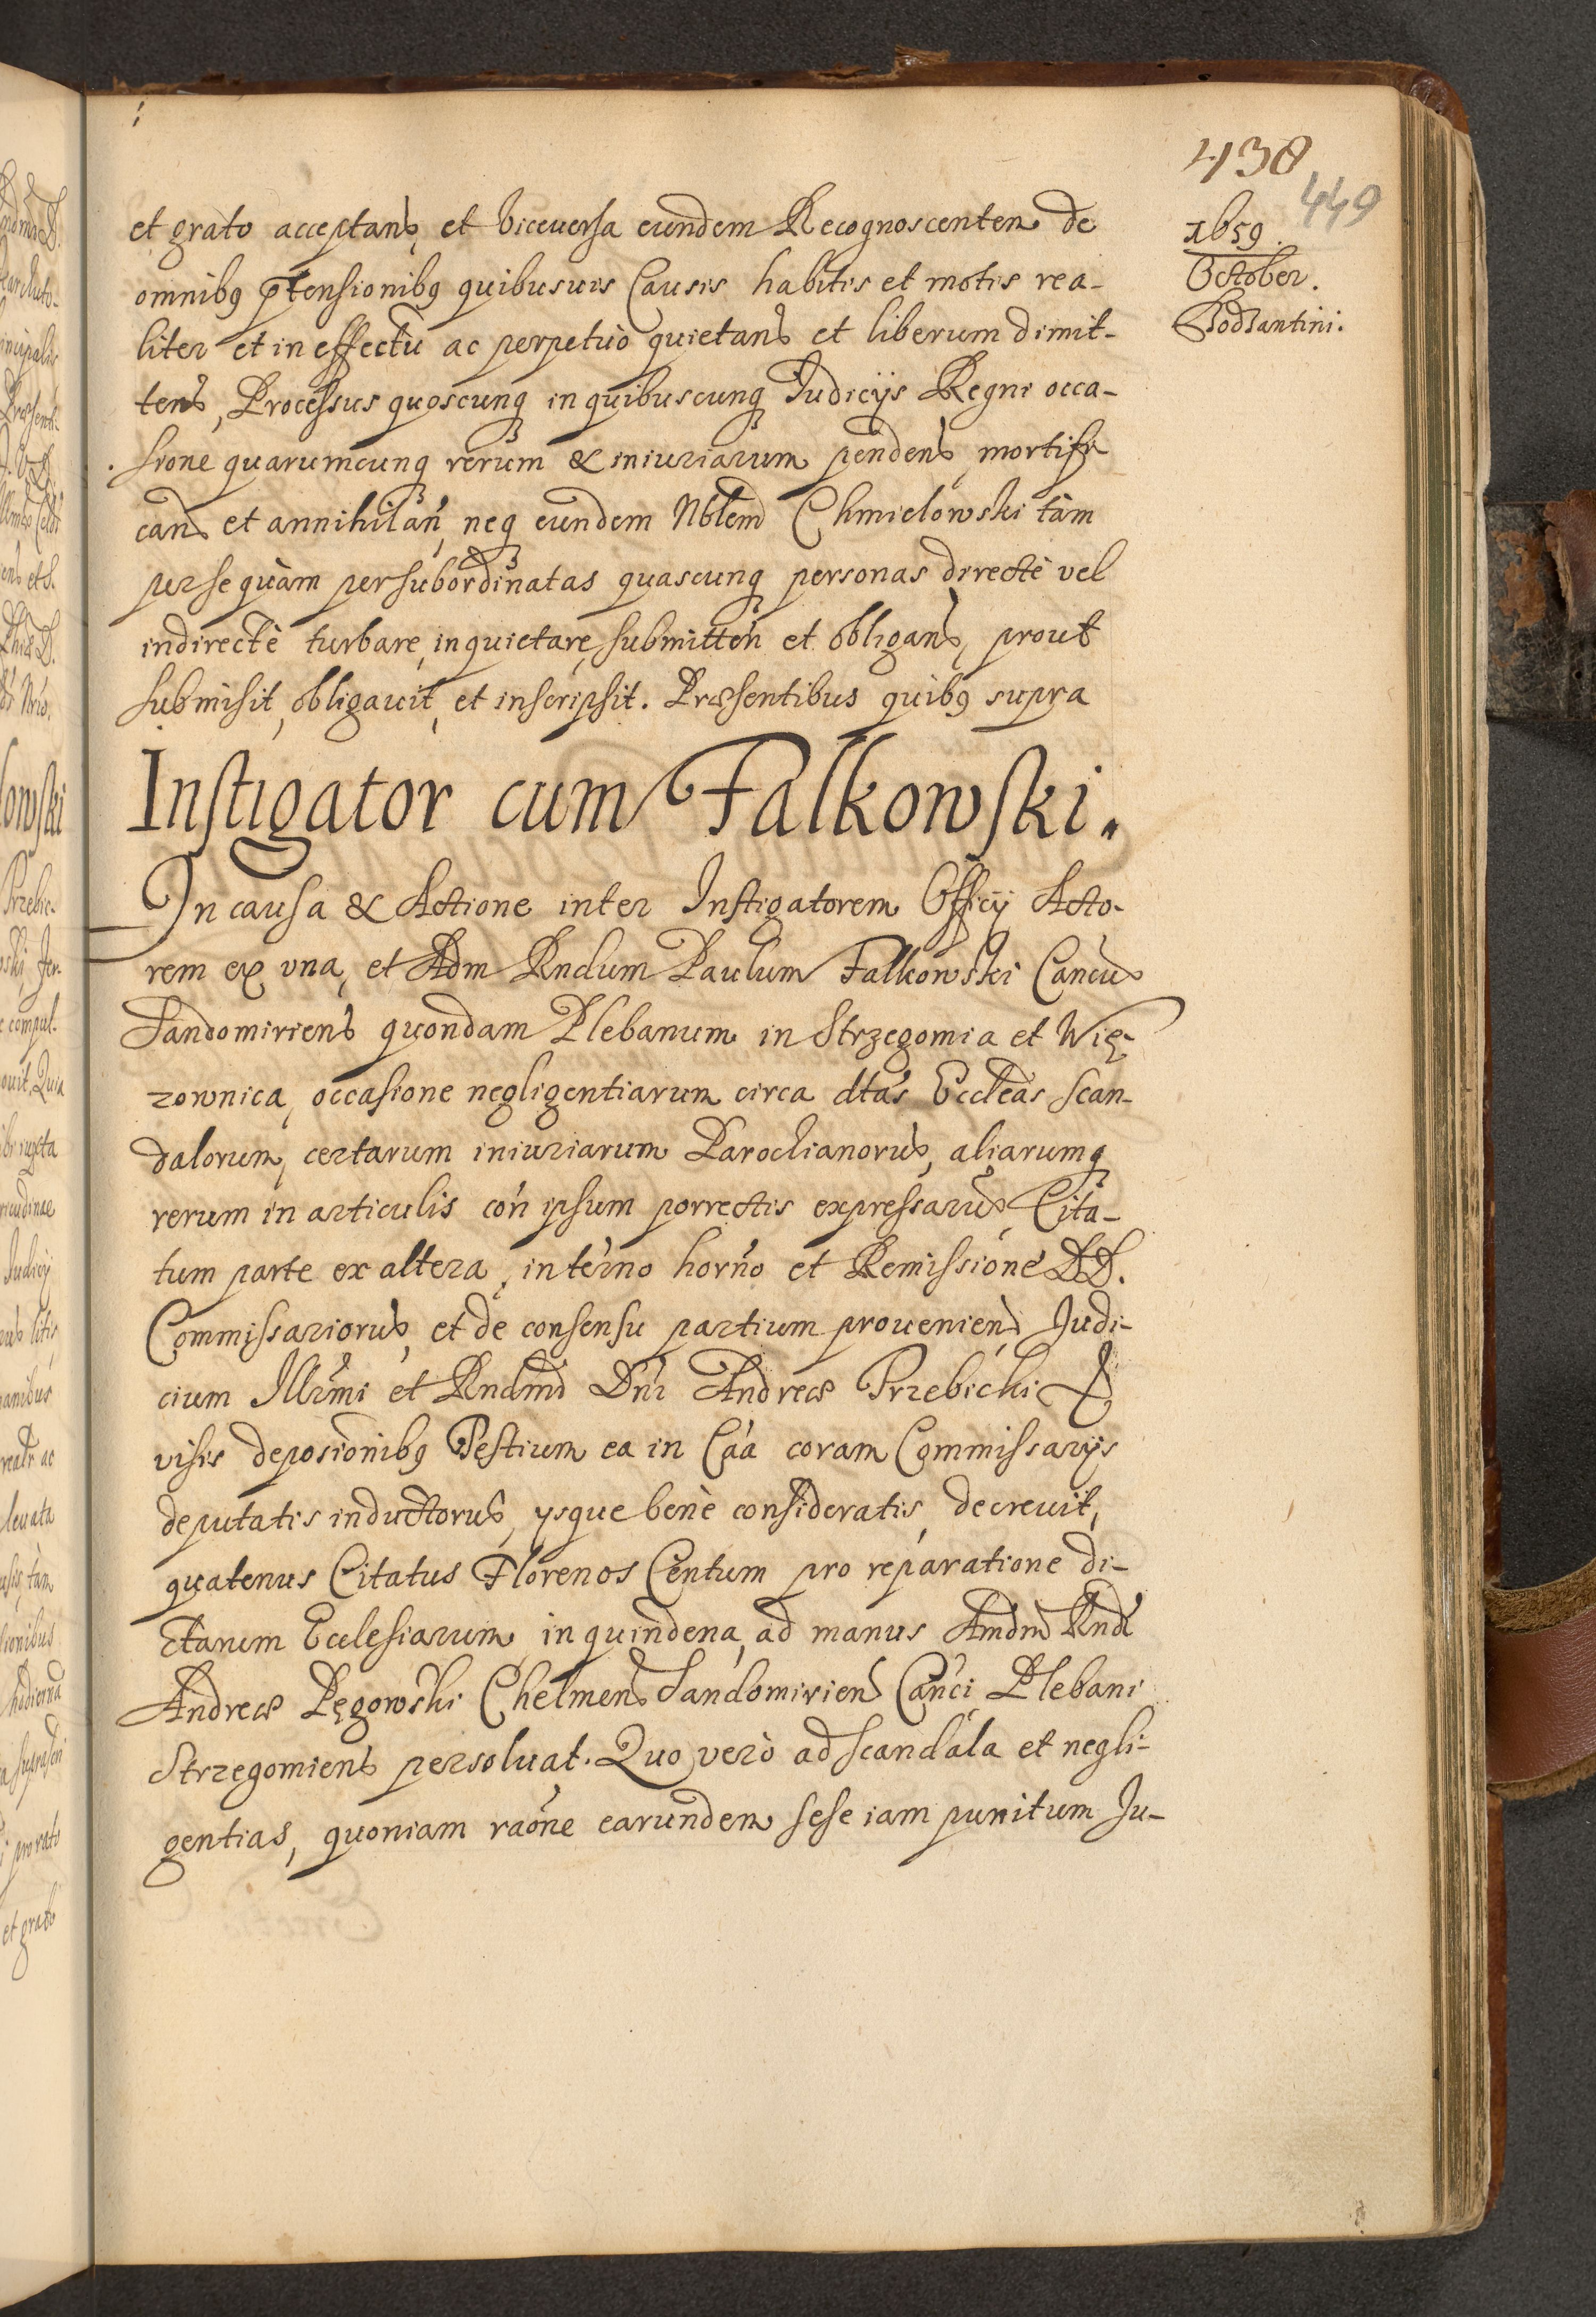 438
449
1659.
October.
Bodzantini.
et grato acceptans, et viceuersa eundem Recognoscentem de
omnibꝰ p̄tensionibꝰ quibusuis Causis habitis et motis rea-
liter et in effectu ac perpetuò quietans et liberum dimit-
tens, Processus quoscunqꝫ in quibuscunqꝫ Judicijs Regni occa-
sione quarumcunqꝫ rerum & iniuriarum pendens, mortifi-
cans et annihilań, neqꝫ eundem Nblem Chmielowski tàm
per se quàm per subordinatas quascunqꝫ personas directè vel
indirectè turbare, inquietare, submitteń et obligans, prout
submisit, obligauit, et inscripsit. Præsentibus quibꝰ supra
Instigator cum Falkowski.
In causa & Actione inter Instigatorem Officij Acto-
rem ex vna, et Adm Rndum Paulum Falkowski Cancum
Sandomiriens quondam Plebanum in Strzegomia et Wię-
zownica, occasione negligentiarum circa dtas Eccleas scan-
dalorum, certarum iniuriarum Parochianorum, aliarumqꝫ
rerum in articulis coń ipsum porrectis expressarum Cita-
tum parte ex altera, in termo horno et Remissione DD.
Commissariorum, et de consensu partium prouenien, Judi-
cium Illrmi et Rndmi Dni Andreæ Trzebicki
visis deposionibꝰ Testium ea in Caa coram Commissarijs
deputatis inductorum, ysque benè consideratis, decreuit,
quatenus Citatus Florenos Centum pro reparatione di-
ctarum Ecclesiarum, in quindena, ad manus Amdm Rndi
Andreæ Pęgowski Chelmens Sandomiriens Canci Plebani
Strzegomiens persoluat. Quo verò ad scandala et negli-
gentias, quoniam raone earundem sese iam punitum Ju-